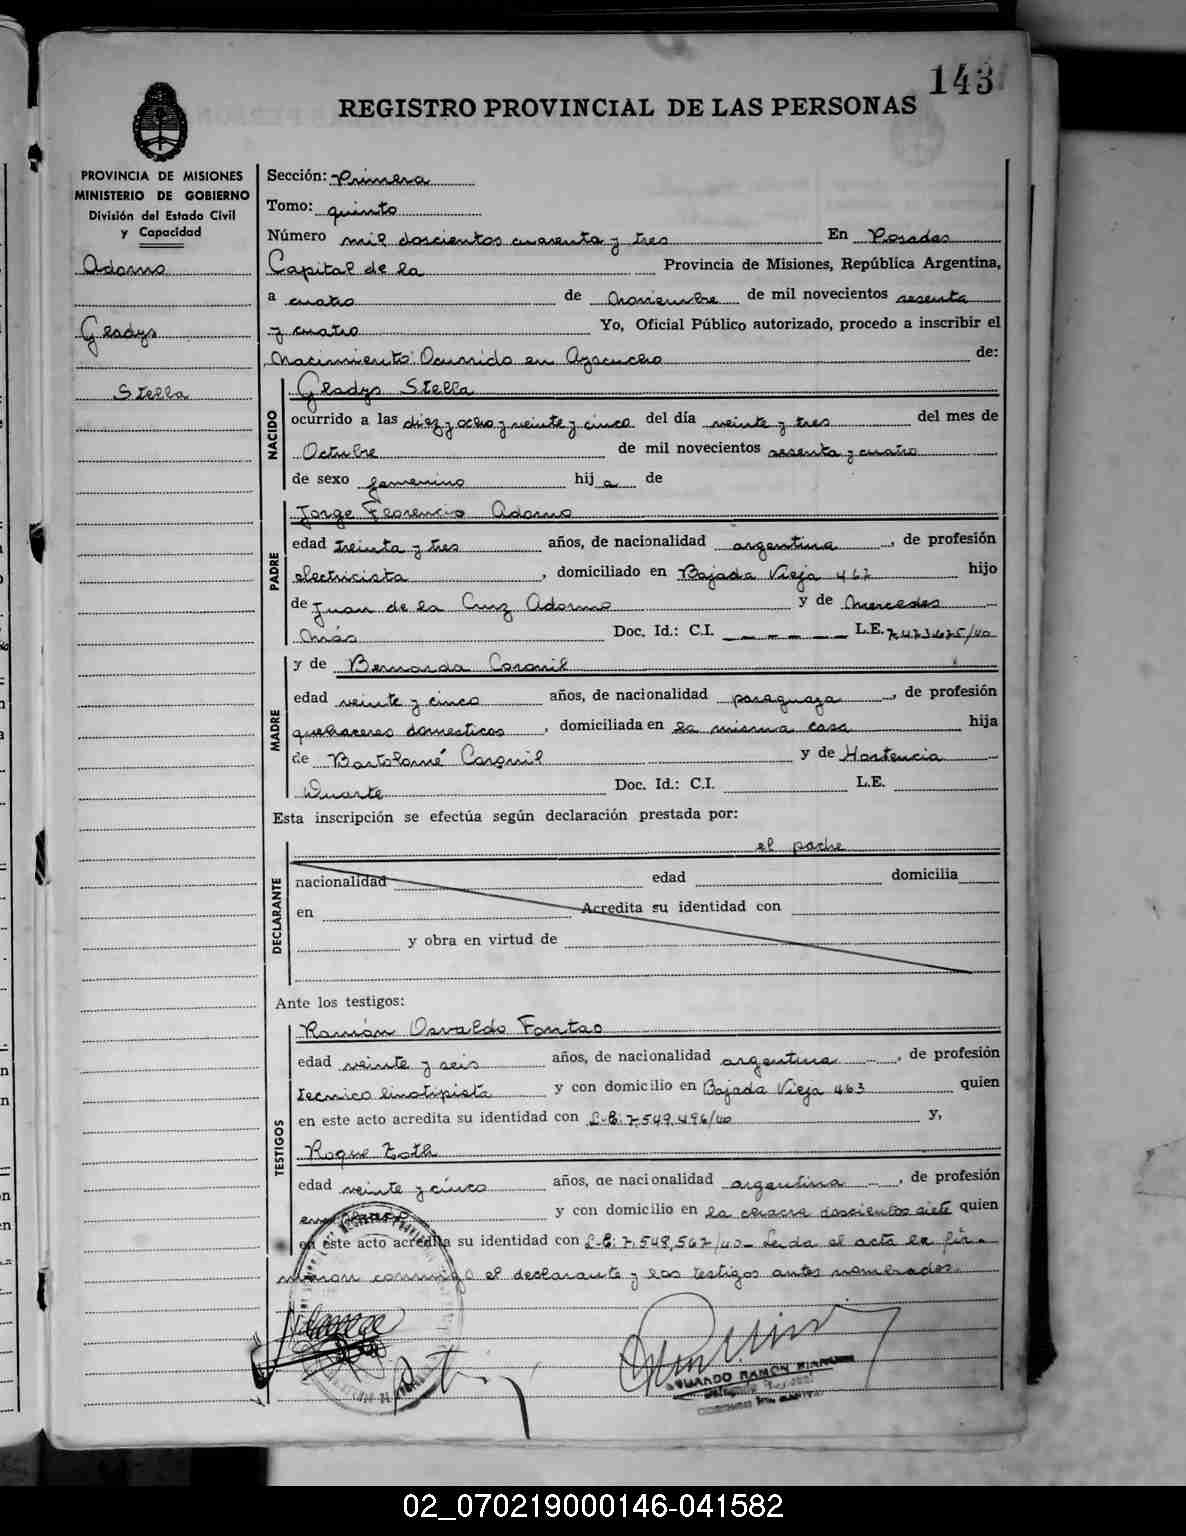 143
REGISTRO PROVINCIAL DE LAS PERSONAS
PROVINCIA DE MISIONES
MINISTERIO DE GOBIERNO
División del Estado Civil
y Capacidad
Adorno
Gladys
Stella
Sección: Primera
Tomo: quinto
Número mil doscientos cuarenta y tres En Posadas
Capital de la Provincia de Misiones, República Argentina,
a cuatro de Noviembre de mil novecientos sesenta
y cuatro Yo, Oficial Público autorizado, procedo a inscribir el
Nacimiento: Ocurrido en Ayacucho de:
NACIDO
Gladys Stella
ocurrido a las diez y ocho y veinte y cinco del día veinte y tres del mes de
Octubre de mil novecientos sesenta y cuatro
de sexo femenino hij a de
PADRE
Jorge Florencio Adorno
edad treinta y tres años, de nacionalidad argentina, de profesión
electricista, domiciliado en Bajada Vieja 467 hijo
de Juan de la Cruz Adorno y de Mercedes
Más Doc. Id.: C.I. — — — — — L.E.
MADRE
y de Bernarda Coronil
edad veinte y cinco años, de nacionalidad paraguaya, de profesión
quehaceres domesticos, domiciliada en la misma casa hija
de Bartolomé Coronil y de Hortencia
Duarte Doc. Id.: C.I. L.E.
Esta inscripción se efectúa según declaración prestada por:
el padre
DECLARANTE
nacionalidad edad domicilia
en Acredita su identidad con
y obra en virtud de
Ante los testigos:
TESTIGOS
Ramón Osvaldo Fontao
edad veinte y seis años, de nacionalidad argentina, de profesión
tecnico linotipista y con domicilio en Bajada Vieja 463 quien
en este acto acredita su identidad con L-E: 7.549.496/40 y,
Roque Zoth
edad veinte y cinco años, de nacionalidad argentina, de profesión
y con domicilio en la chacra doscientos siete quien
en este acto acredita su identidad con L-E: 7.548,567/40- Leida el acta la fir-
maron conmigo el declarante y los testigos antes nombrados.
02_070219000146-041582